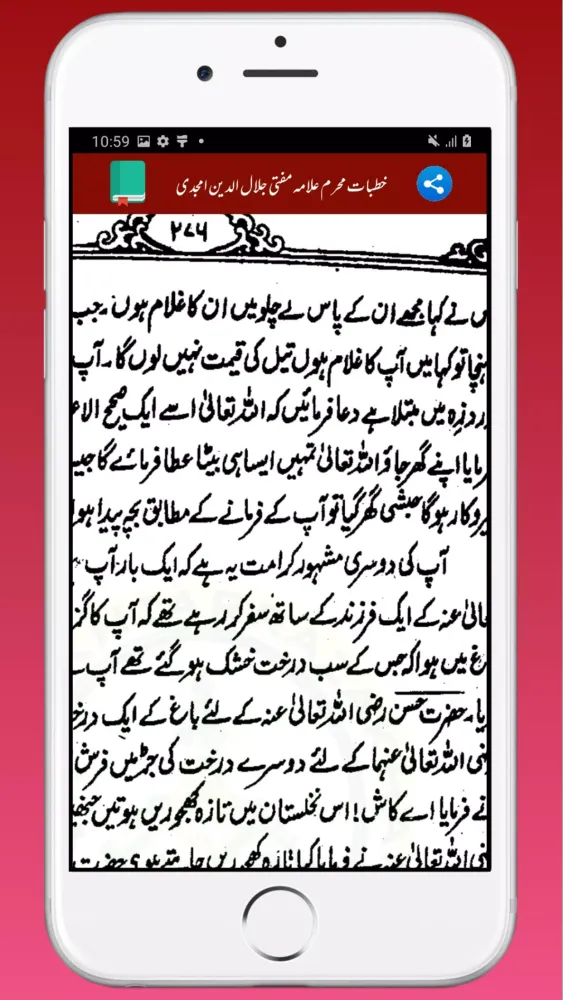 10:59
خطبات محرم علامہ مفتی جلال الدین امجدی
۲۷۶
س نے کہا مجھے ان کے پاس لے چلو میں ان کا غلام ہوں۔ جب
پہنچا تو کہا میں آپ کا غلام ہوں تیل کی قیمت نہیں لوں گا۔ آپ
درد زہ میں مبتلا ہے دعا فرمائیں کہ اللہ تعالیٰ اسے ایک صحیح الاع
رمایا اپنے گھر جاؤ اللہ تعالیٰ تمہیں ایسا ہی بیٹا عطا فرمائے گا جیسا
یروکار ہوگا حبشی گھر گیا تو آپ کے فرمانے کے مطابق بچہ پیدا ہوا
آپ کی دوسری مشہور کرامت یہ ہے کہ ایک بار آپ
عالیٰ عنہ کے ایک فرزند کے ساتھ سفر کر رہے تھے کہ آپ کا گز
باغ میں ہوا کہ جس کے سب درخت خشک ہو گئے تھے آپ
یا۔ حضرت حسن رضی اللہ تعالیٰ عنہ کے لئے باغ کے ایک درخ
ضی اللہ تعالیٰ عنہما کے لئے دوسرے درخت کی جڑ میں فرش
نے فرمایا اے کاش! اس نخلستان میں تازہ کھجوریں ہوتیں جنھیں
ضی اللہ تعالیٰ عنہ نے فرمایا کیا تازہ کھجوریں چاہتے ہو؟ حضرت